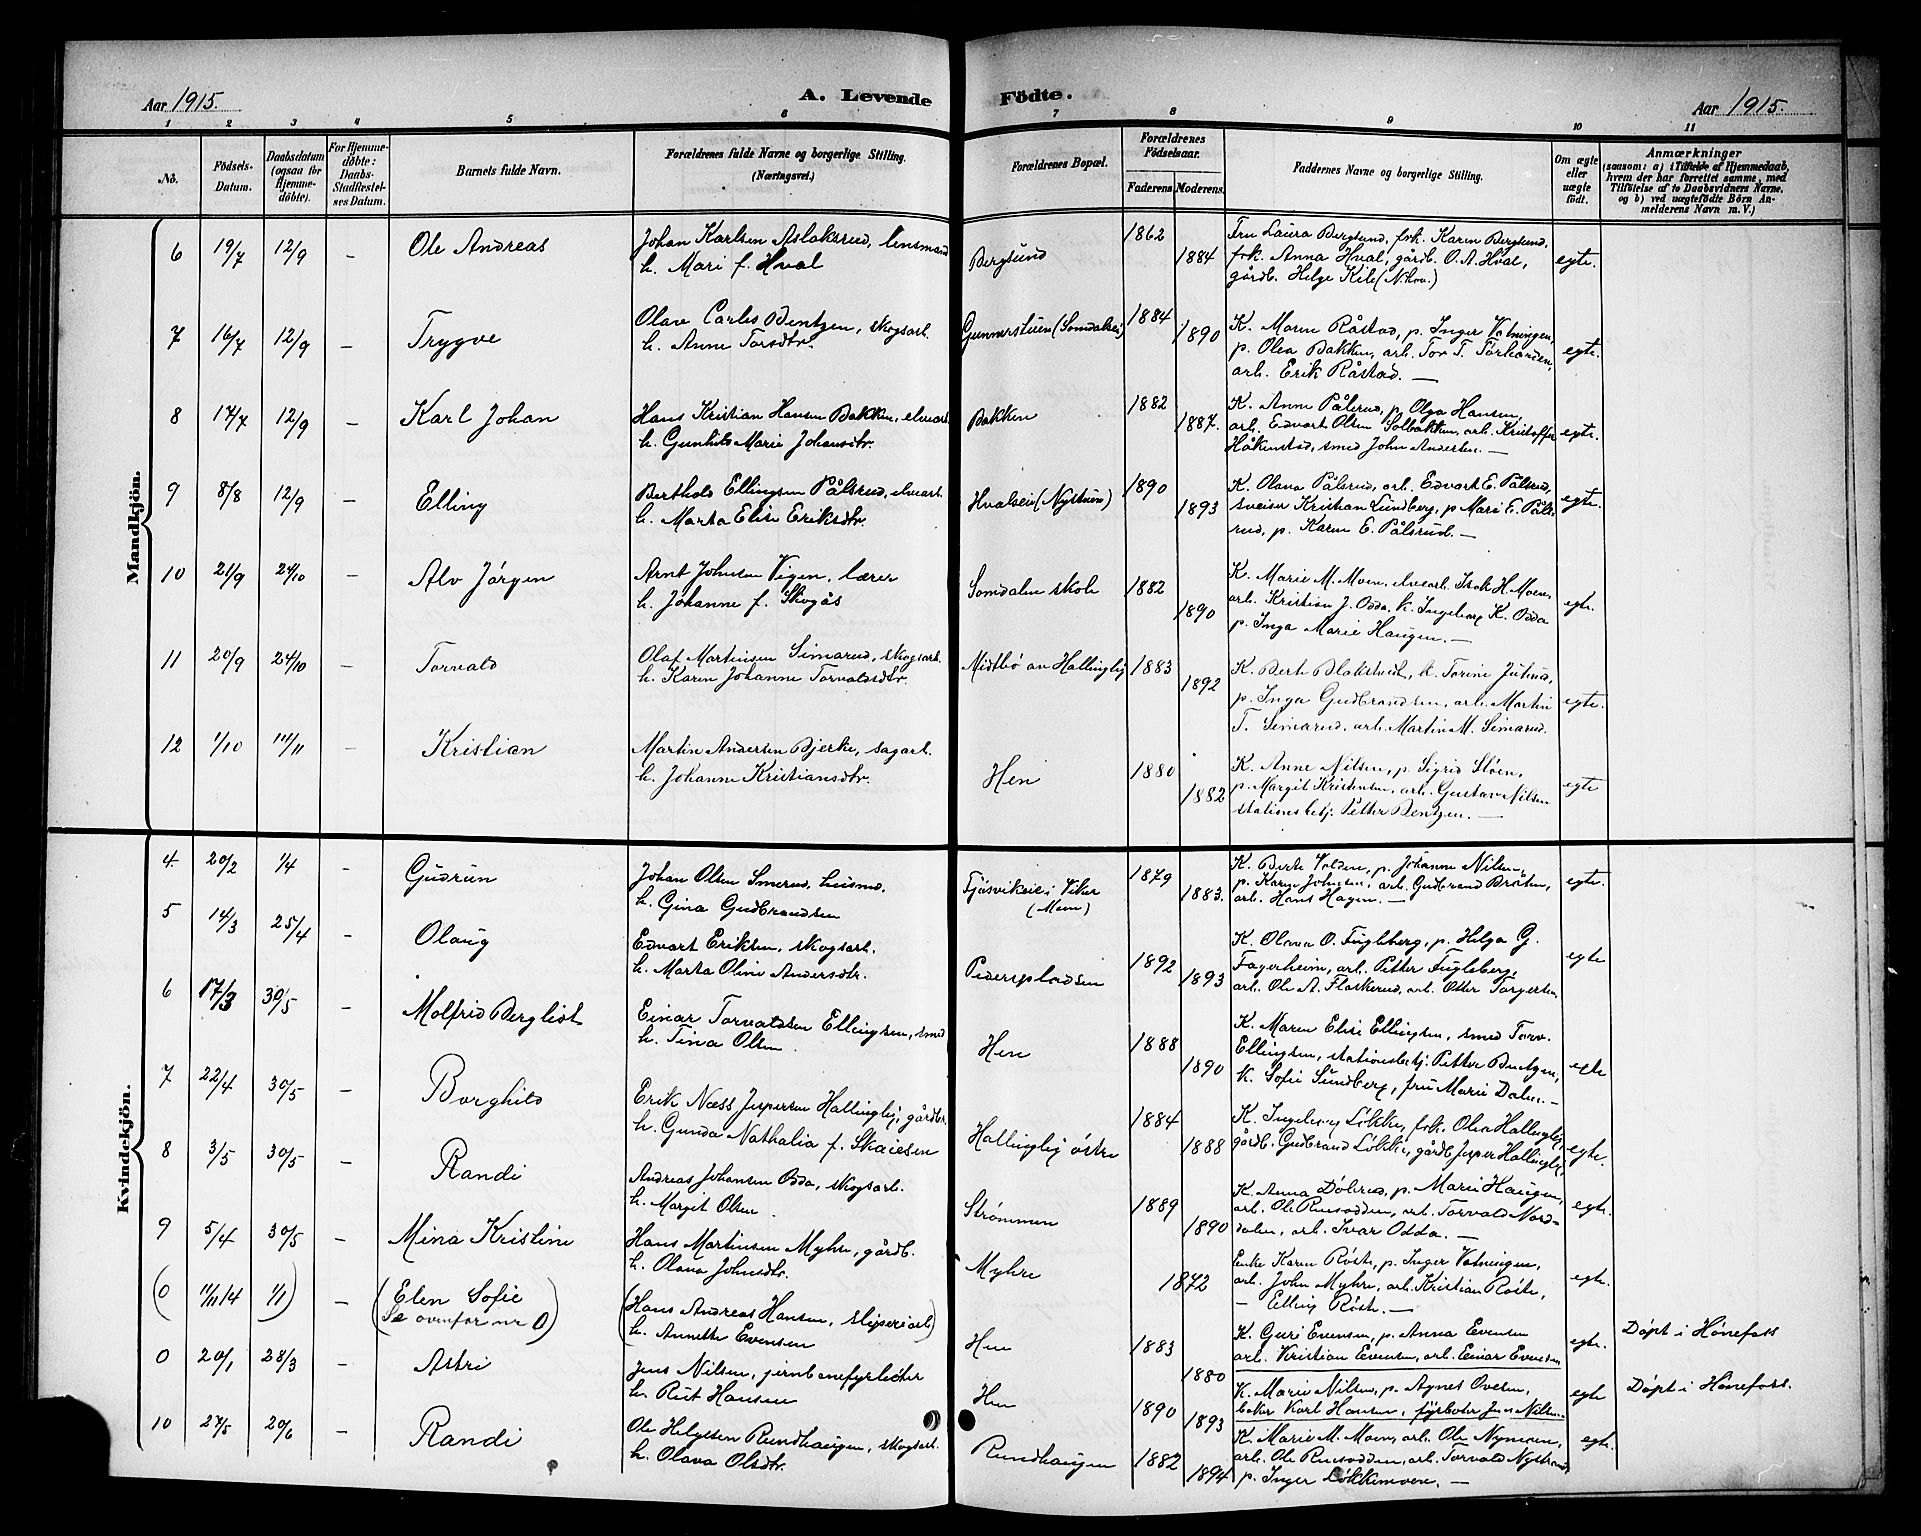 Aar 1915.
A. Levende Fødte.
Aar 1915.
1 2 3 4 5 6 7 8 9 10 11
No.
Fødsels-Datum.
Daabsdatum (ogsaa for Hjemme-døbte).
For Hjemme-døbte: Daabs-Stadfæstelses Datum.
Barnets fulde Navn.
Forældrenes fulde Navne og borgerlige Stilling.
(Næringsvei.)
Forældrenes Bopæl.
Forældrenes Fødselsaar.
Faderens. Moderens.
Faddernes Navne og borgerlige Stilling.
Om ægte eller uægte født.
Anmærkninger
(saasom: a) i Tilfælde af Hjemmedaab,
hvem der har forrettet samme, med
Tilføielse af to Daabsvidners Navne,
og b) ved uægtefødte Børn An-
melderens Navn m. V.)
Mandkjön.
6 19/7 12/9 – Ole Andreas
Johan Karlsen Aslaksrud, lensmand
h. Mari f. Hval
Bergsund 1862 1884
Fru Laura Bergsund, frk. Karen Bergsund,
frk. Anna Hval, gårdb. O. A. Hval,
gårdb. Helge Kile (N.hov.)
egte.
7 16/7 12/9 – Trygve
Olav Carles Bentzen, skogsarb.
h. Anne Torsdtr.
Gunnerstuen (Somdalen) 1884 1890
K. Maren Råstad, p. Inger Vatningen,
p. Olea Bakken, arb. Tor T.
arb. Erik Råstad. —
egte.
8 17/7 12/9 – Karl Johan
Hans Kristian Hansen Bakken, elvearb.
h. Gunhild Marie Johansdtr.
Bakken 1882 1887.
K. Anne Pålsrud, p. Olga Hansen,
arb. Edvart Olsen Solbakken, arb. Kristoffer
Håkenstad, smed John Andersen. —
egte.
9 8/8 12/9 – Elling
Berthold Ellingsen Pålsrud, elvearb.
h. Marta Elise Eriksdtr.
Hvalseie (Nystuen) 1890 1893
K. Olava Pålsrud, arb. Edvart E. Pålsrud,
sveiser Kristian Lundberg, p Mari E. Påls-
rud, p. Karen E. Pålsrud. —
egte.
10 21/9 24/10 – Alv Jørgen
Arnt Johnsen Vigen, lærer
h. Johanne f. Skogås
Somdalen skole 1882 1890
K. Marie M. Moen, elvearb. Isak H. Moen,
arb. Kristian J. Odda, k. Ingeborg K. Odda
p. Inga Marie Haugen. —
egte.
11 20/9 24/10 – Torvald
Olaf Martinsen Simarud, skogsarb.
h. Karen Johanne Torvaldsdtr.
Midtbø av Hallinglij 1883 1892
K. Berte Blakstveit, k. Torine
p. Inga Gudbrandsen, arb. Martin
T. Simarud, arb. Martin M. Simarud.
egte.
12 1/10 11/11 – Kristian
Martin Andersen Bjerke, sagarb.
h. Johanne Kristiansdtr.
Hen 1880 1882
K. Anne Nilsen, p. Sigrid Sløen,
p. Margit Kristensen, arb. Gustav Nilsen
stationsbetj. Petter Bentzen. —
egte
Kvindekjön.
4. 20/2 1/4 – Gudrun
Johan Olsen Smerud, husmd.
h. Gina Gudbrandsen
Tjøsvikeie i Viker
(Moen)
1879 1883.
K. Berte Volden, p. Johanne Nilsen,
p. Karen Johnsen, arb. Gudbrand Bråten,
arb. Hans Hagen. —
egte.
5 14/3 25/4 – Olaug
Edvart Eriksen, skogsarb.
h. Marta Oline Andersdtr.
Pedersplassen 1892 1893
K. Olava O. Fugleberg, p. Helga G.
Fagerheim, arb. Petter Fugleberg,
arb. Ole A. Flaskerud, arb. Otter Torgersen,
egte
6 17/3 30/5 – Molfrid Bergliot
Einar Torvaldsen Ellingsen, smed
h. Tina Olsen
Hen 1888 1890
K. Maren Elise Ellingsen, smed Torv.
Ellingsen, stationsbetj. Petter Bentzen,
K. Sofie Sundberg, fru Marie Dalen. —
egte
7 22/4 30/5 – Borghild
Erik Næss Jespersen Hallinglij, gårdbr.
h. Gunda Nathalia f. Skaiesen
Hallinglij østre 1884 1888
K. Ingeborg Løkke, frk. Olea Hallinglij,
gårdb. Gudbrand Løkke, gårdb. Jesper Hallinglij,
egte.
8 3/5 30/5 – Randi
Andreas Johansen Oda, skogsarb.
h. Margit Olsen
Strømmen 1889 1890
K. Anna Dølerud, p. Marie Haugen,
arb. Ole Rusodden, arb. Torvald Nord-
dalen, arb. Ivar Odda. —
egte.
9 5/4 30/5 – Mina Kristine
Hans Martinsen Myhre, gårdb.
h. Olava Johnsdtr.
Myhre 1872
Enke Karen Røste, p. Inger Vatningen,
arb. John Myhre, arb. Kristian Røste,
– Elling Røste. —
egte.
(0 11/11 14 1/1) – (Elen Sofie
Se ovenfor nr 0)
(Hans Andreas Hansen, sliperiarb.)
h. Annette Evensen
Hen 1883 1880
K. Guri Evensen, p. Anna Evensen
arb. Kristian Evensen, arb. Einar Evensen
egte. Døpt i Hønefoss
0 20/1 28/3 – Astri
Jens Nilsen, jernbanefyrbøter
h. Rut Hansen
Hen 1890 1893
K. Marie Nilsen, p. Agnes Ovesen,
baker Karl Hansen, fyrbøter Jens Nilsen
egte Døpt i Hønefoss.
10 27/5 20/6 – Randi
Ole Helgesen Rundhaugen, skogsarb.
h. Olava Olsdtr.
Rundhaugen 1882 1894
K. Marie M. Moen, arb. Ole Nymoen,
arb. Ole Rusodden, arb. Torvald Nystrand,
p. Inger Løkkemoen. —
egte.